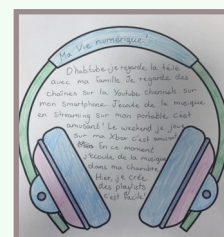 Ma Vie numérique!
D'habitude je regarde la télé
avec ma famille. Je regarde des
chaînes sur la Youtube channels sur
mon smartphone. J'écoute de la musique
en streaming sur mon portable c'est
amusant! Le weekend je joue
sur ma Xbox c'est amusant!
En ce moment
j'écoute de la musique
dans ma chambre.
Hier, je crée
des playlists
c'est facile!